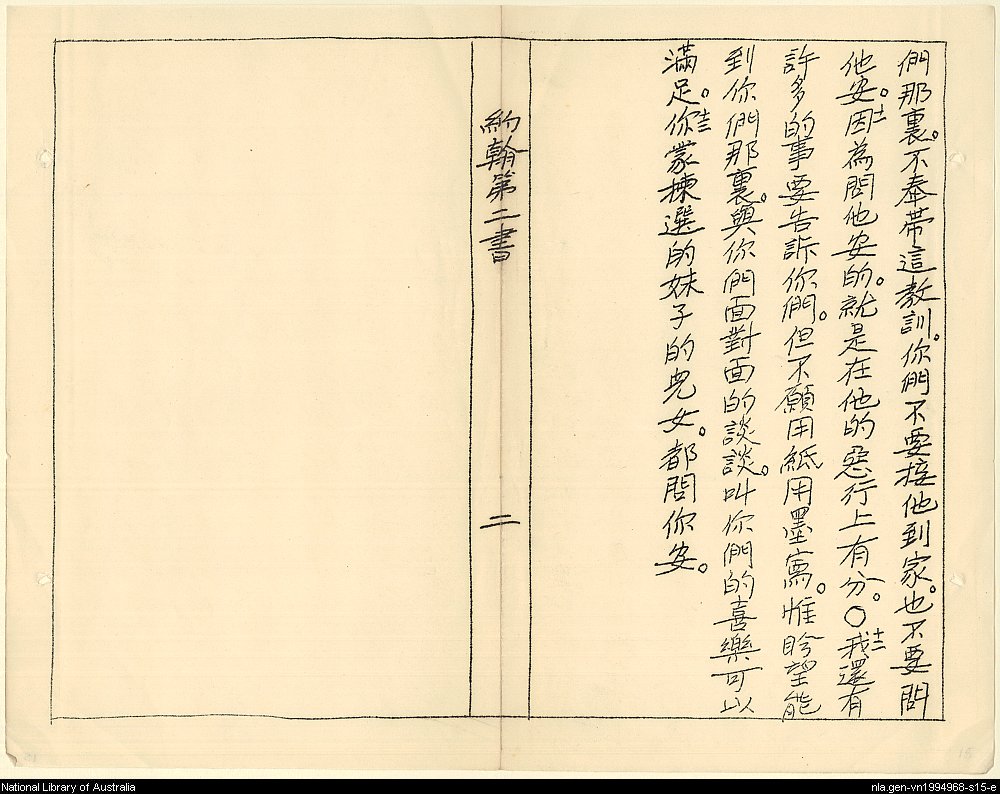 們那裏。不奉帶這教訓。你們不要接他到家。也不要問
他安。十一因為問他安的。就是在他的惡行上有分。〇十二我還有
許多的事要告訴你們。但不願用紙用墨寫。惟盼望能
到你們那裏。與你們面對面的談談。叫你們的喜樂可以
滿足。十三你蒙揀選的妹子的兒女。都問你安。
約翰第二書 二
National Library of Australia
nla.gen-vn1994968-s15-e